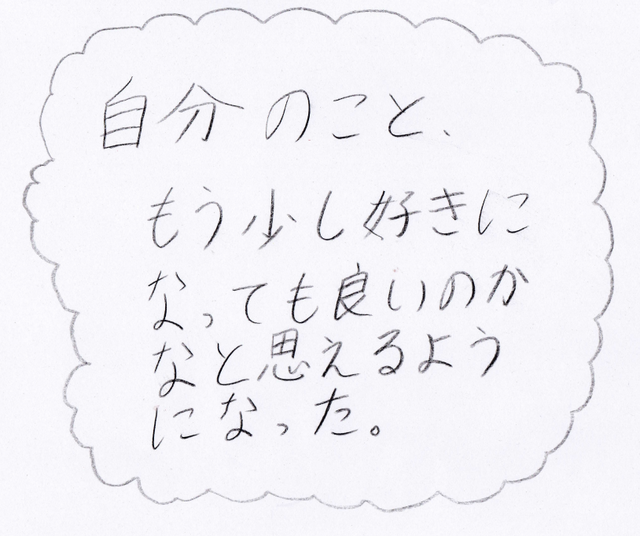 自分のこと、
もう少し好きに
なっても良いのか
なと思えるよう
になった。